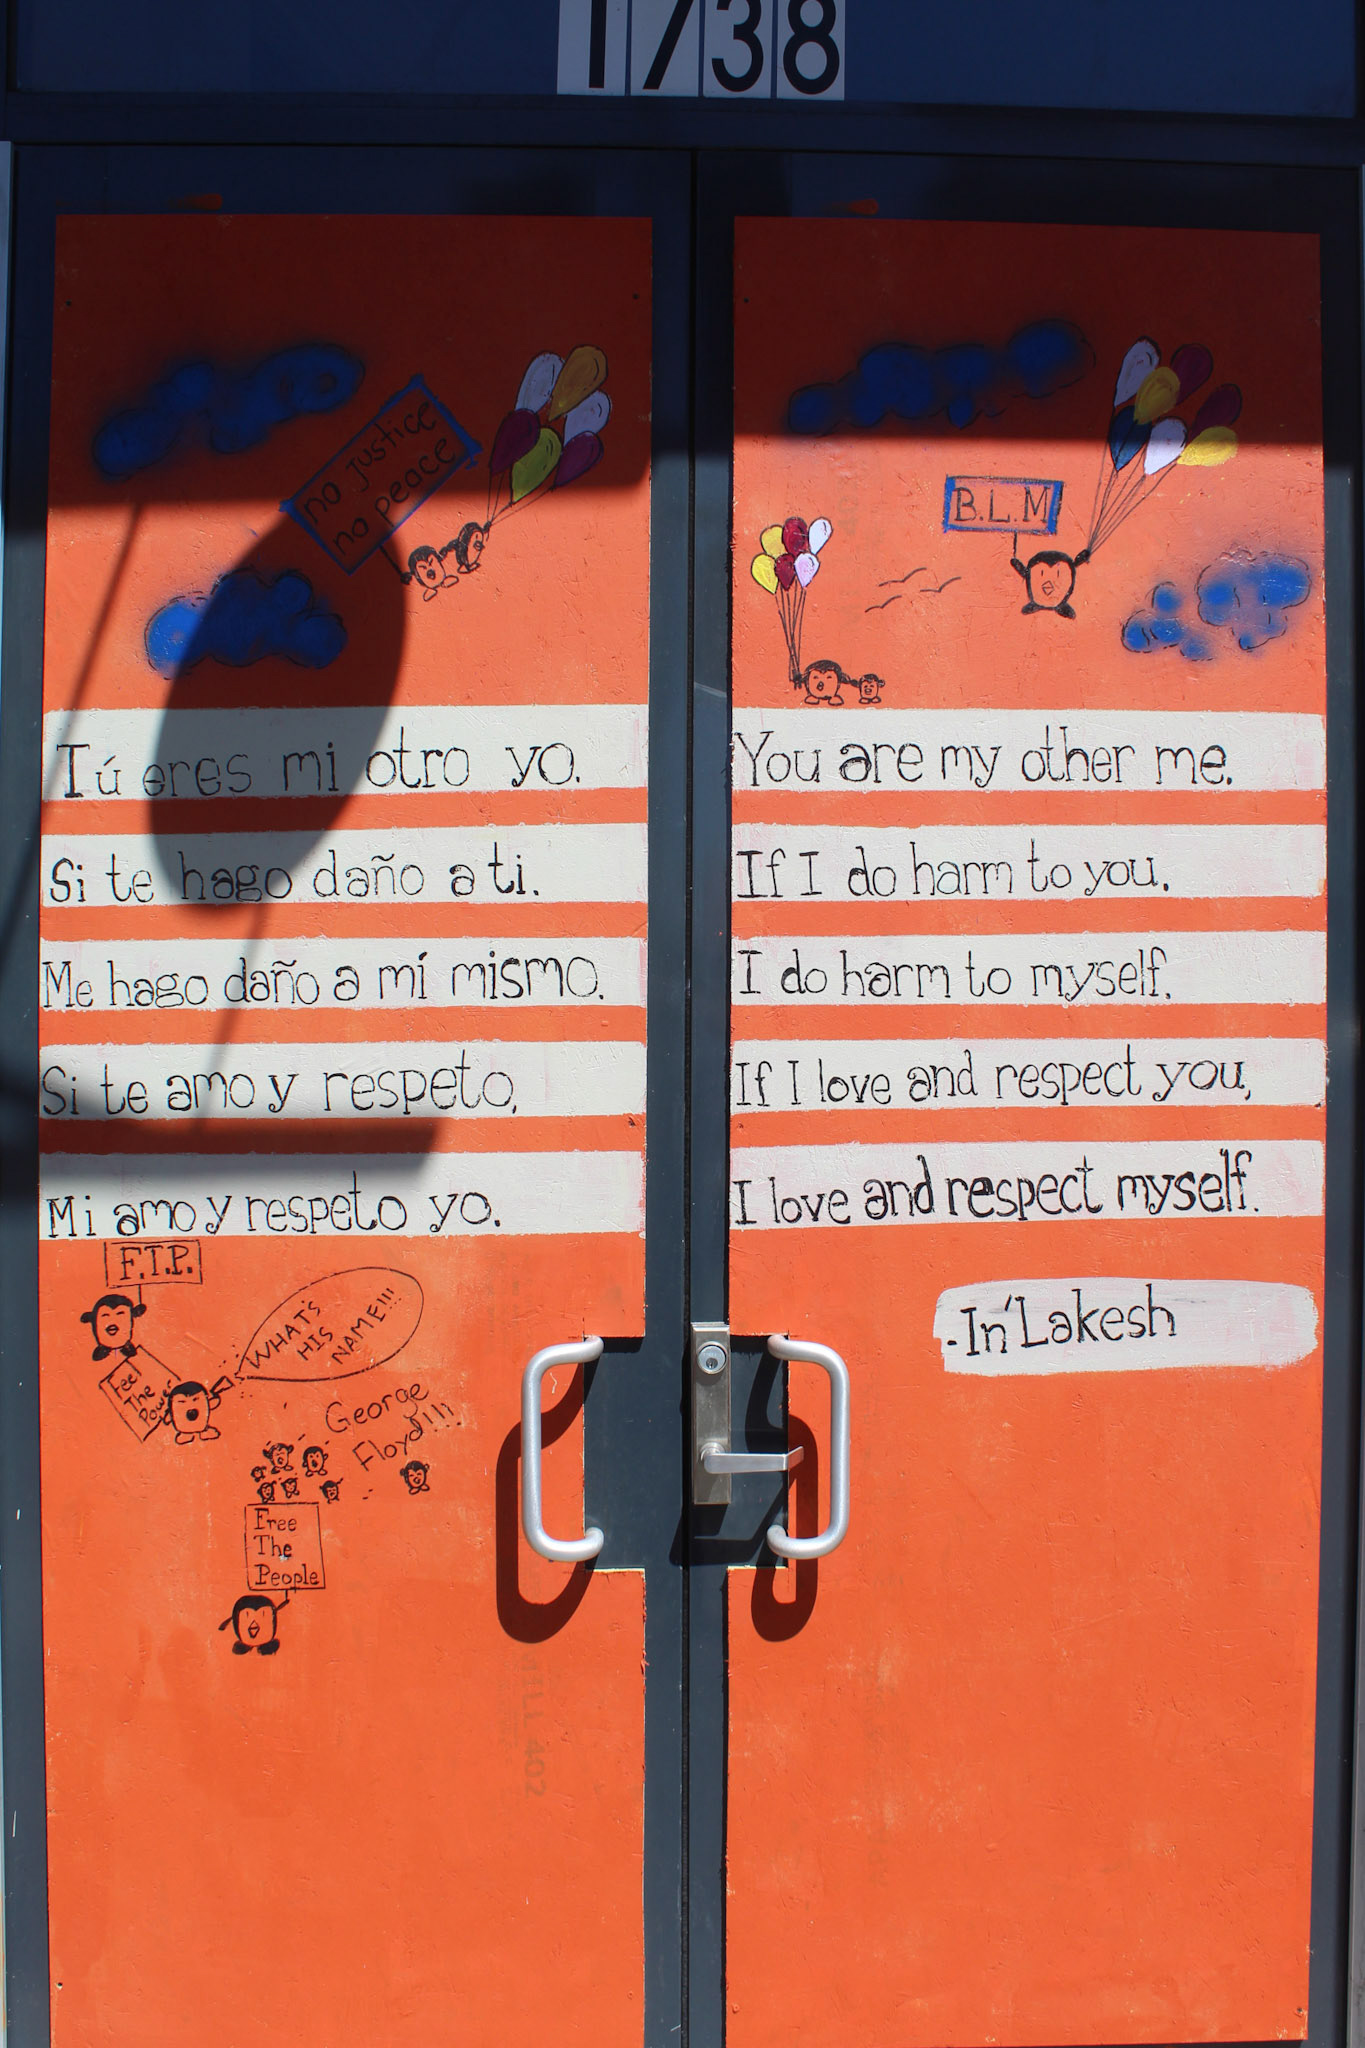 1738
no justice
no peace
B.L.M
Tú eres mi otro yo.
Si te hago daño a ti.
Me hago daño a mí mismo.
Si te amo y respeto,
Mi amo y respeto yo.
You are my other me.
If I do harm to you.
I do harm to myself.
If I love and respect you,
I love and respect myself.
-In'Lakesh
F.T.P.
Feel
The
Power
WHAT'S
HIS
NAME!!!
George
Floyd!!!
Free
The
People
MILL 402